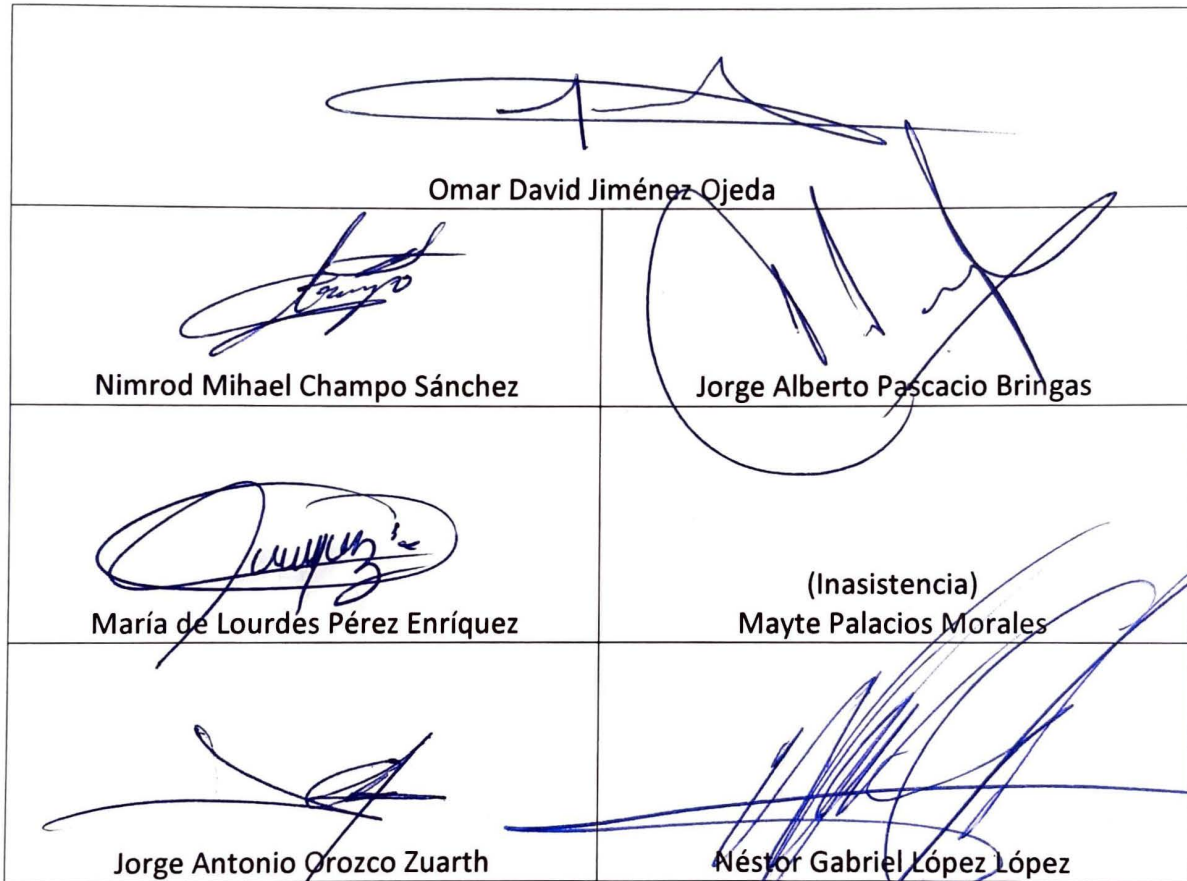 Omar David Jiménez Ojeda
Nimrod Mihael Champo Sánchez
Jorge Alberto Pascacio Bringas
María de Lourdes Pérez Enríquez
(Inasistencia)
Mayte Palacios Morales
Jorge Antonio Orozco Zuarth
Néstor Gabriel López López